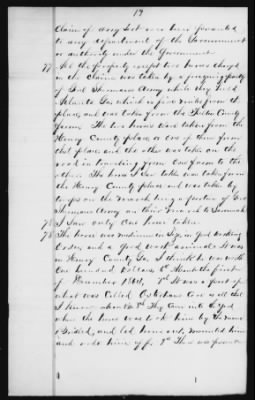 19
Claim of any sort ever been presented
to any department of the Government
or authority under the Government
77 All the property except two horses charged
in the claim was taken by a foraging party
of Genl Shermans Army while they held
Atlanta Ga which is five miles from the
place, and was taken from the Fulton County
farm. The two horses were taken from the
Henry County place, or one of them from
that place and the other was taken on the
road in traveling from one farm to the
other. The horse I saw taken was taken from
the Henry County place and was taken by
troops on the march being a portion of Genl
Shermans Army on their march to Savannah
78 I saw only one horse taken
79 The horse was medium in size, in good working
order, and a good work animal. It was
in Henry County Ga. I think he was worth
One hundred dollars. About the first
of November 1864, It was a part of
what was called Osterhaus Com is all that
I know about it. They came into the yard
when the horse was &
Bridled, and led him out, mounted him
and rode him off. There was